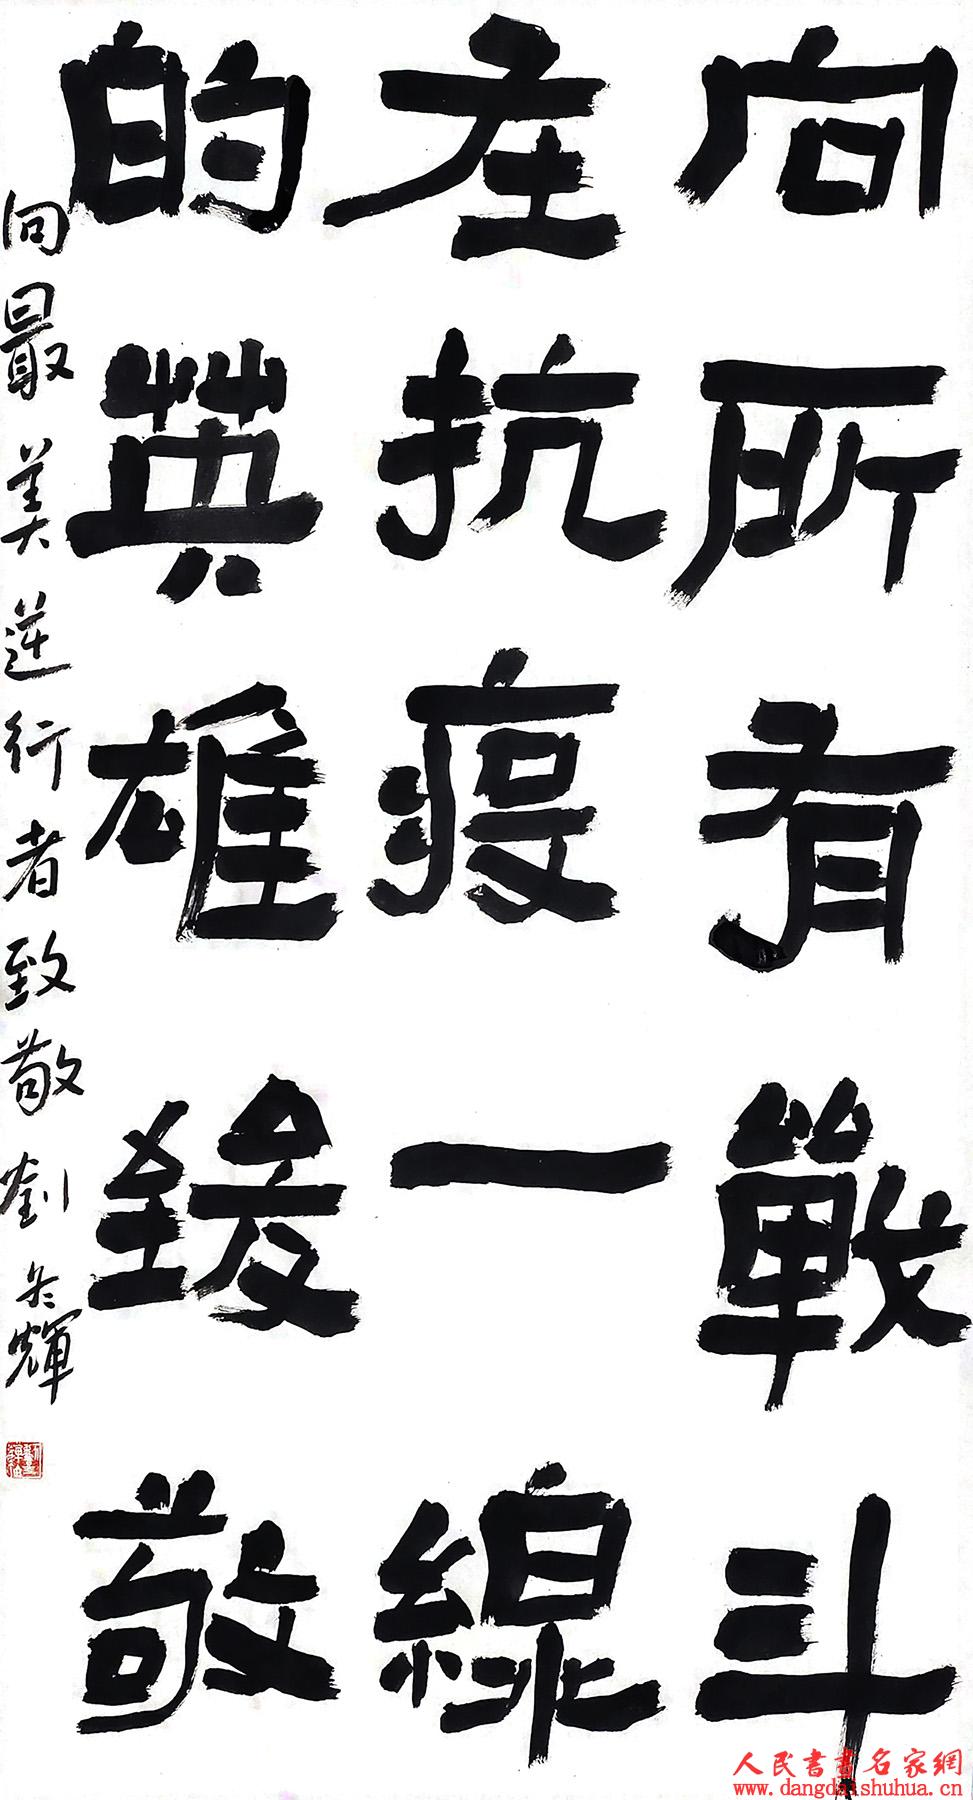 向所有戰斗
在抗疫一線
的英雄致敬
向最美逆行者致敬 劉冬輝
人民書畫名家網
www.dangdaishuhua.cn